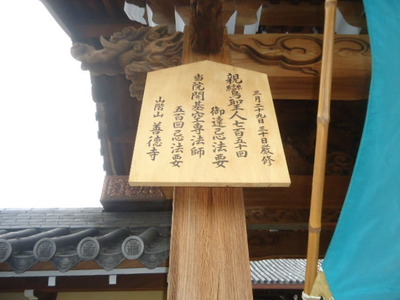 三月二十九日三十日厳修
親鸞聖人七百五十回
御遠忌法要
当院開基空専法師
五百回忌法要
山階山 善徳寺